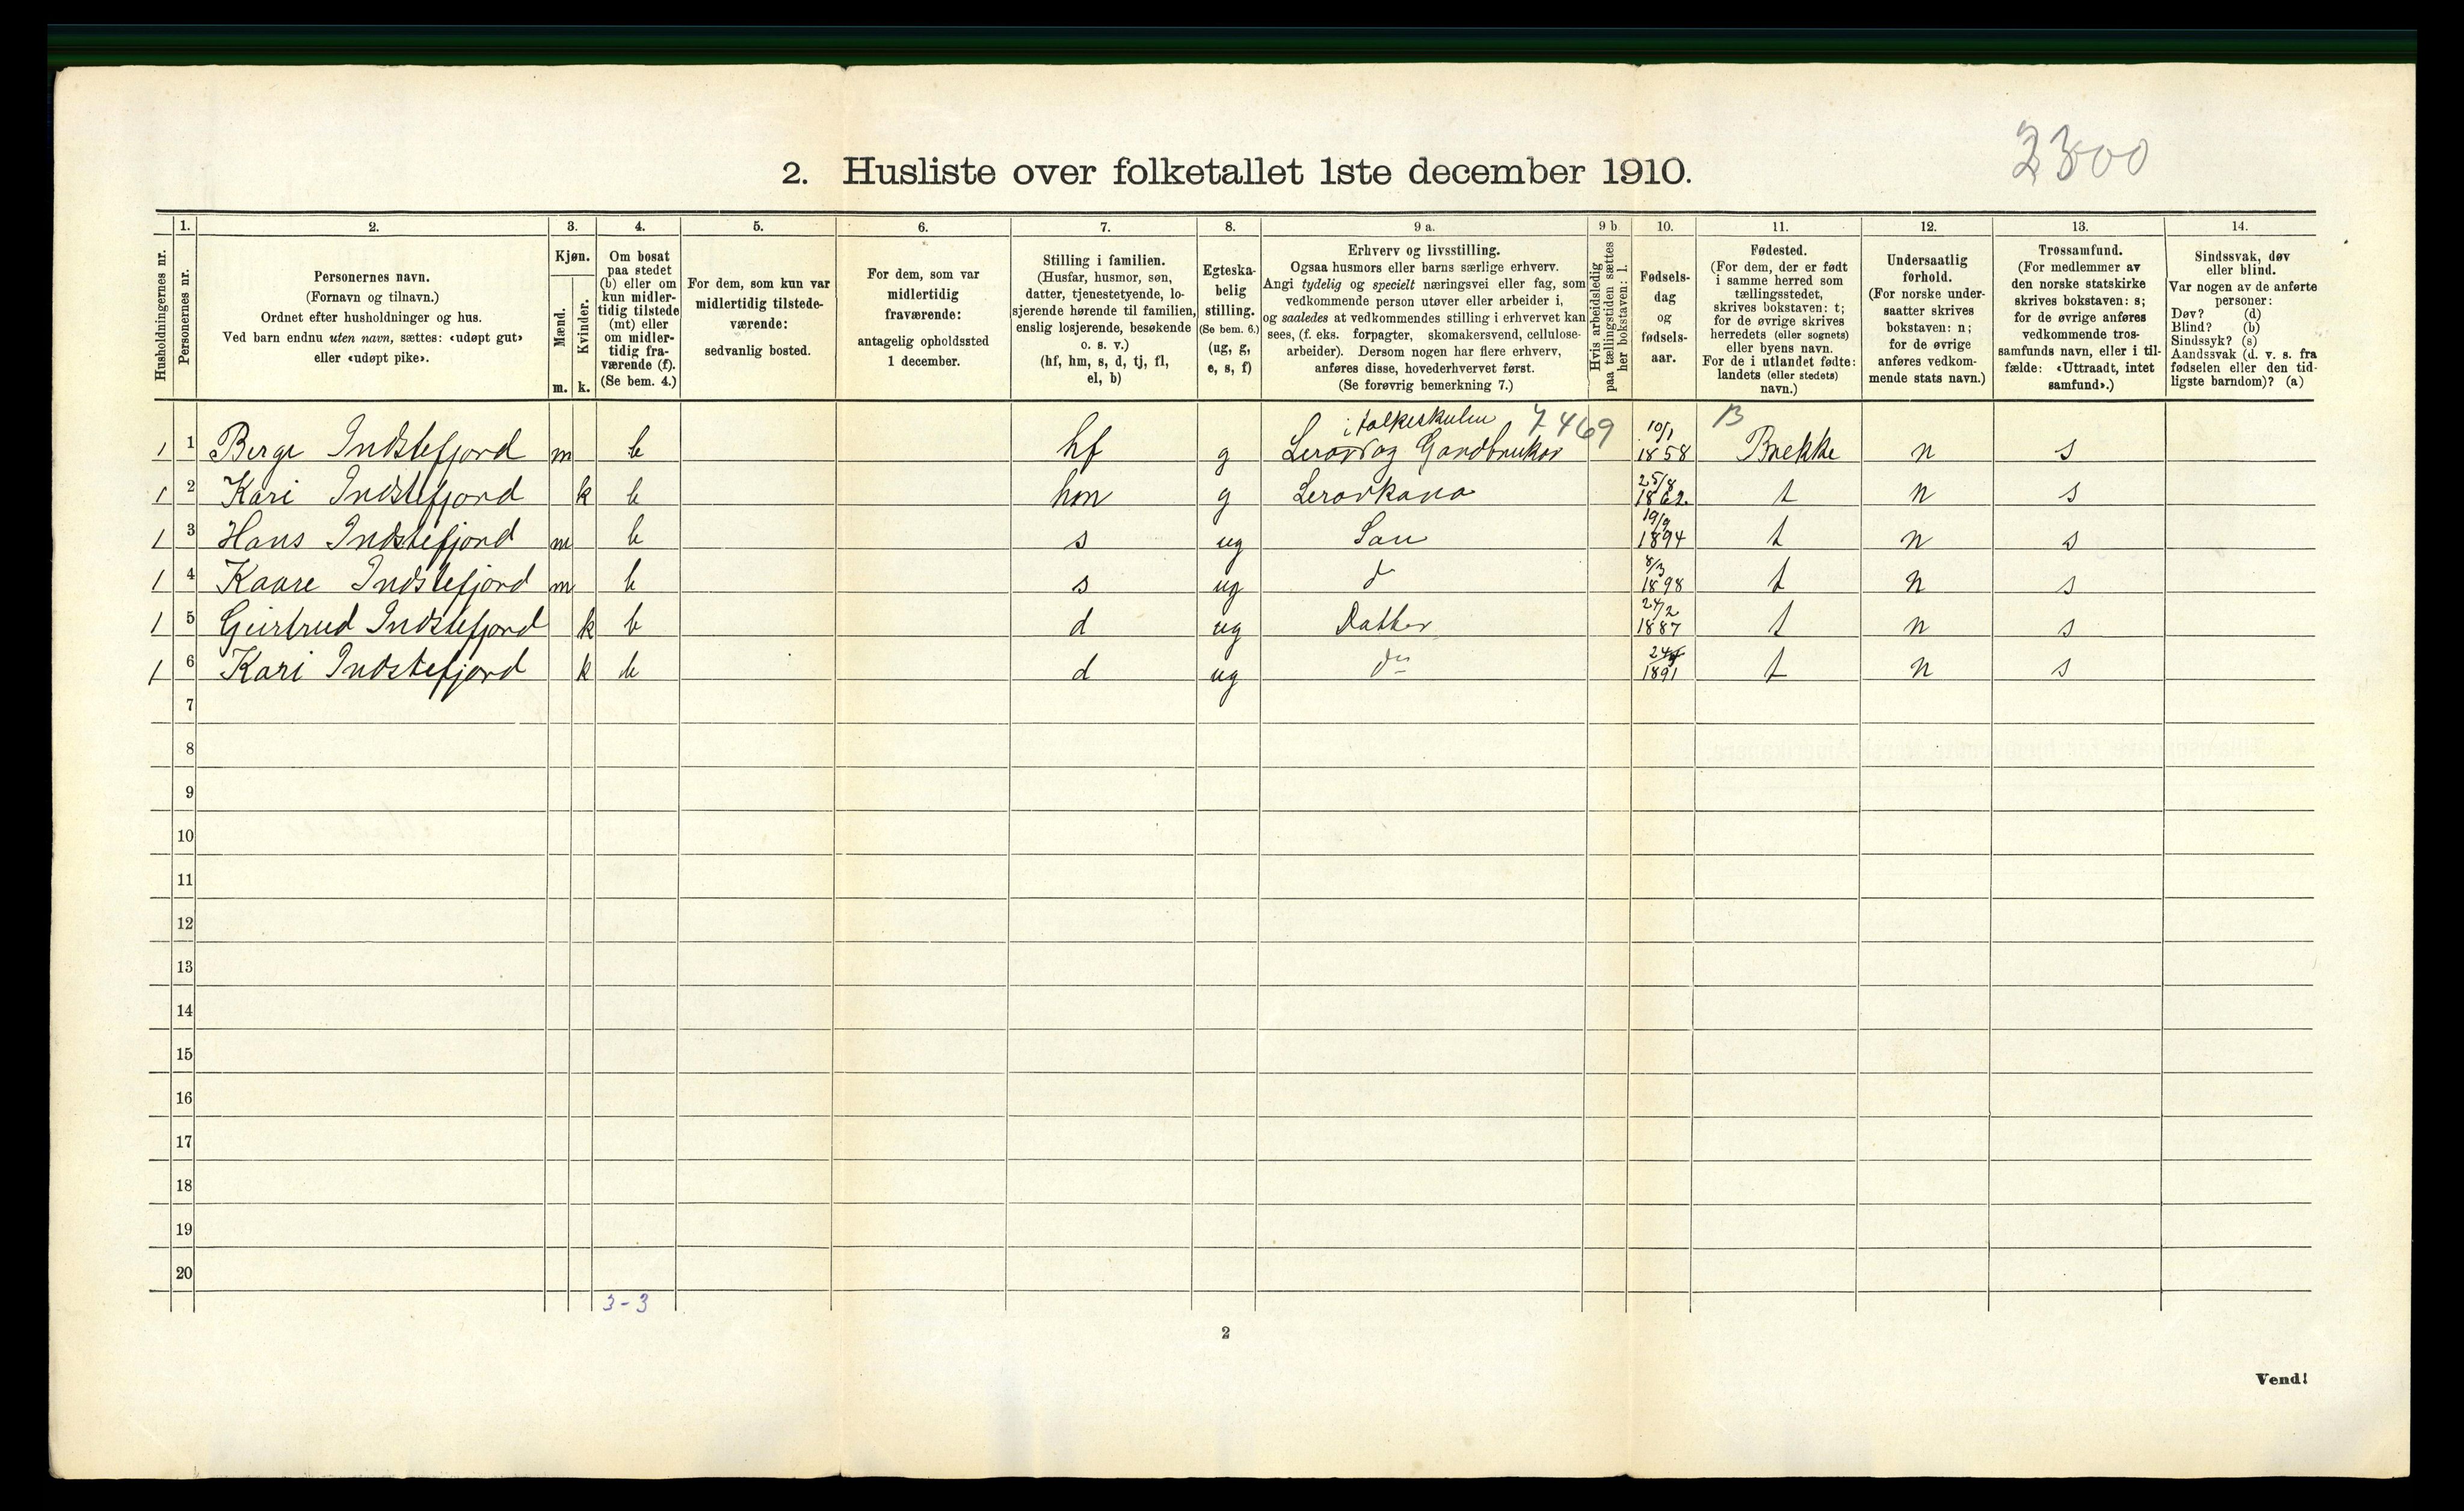 2300
2. Husliste over folketallet 1ste december 1910.
Husholdningernes nr.
1.
Personernes nr.
2.
Personernes navn.
(Fornavn og tilnavn.)
Ordnet efter husholdninger og hus.
Ved barn endnu uten navn, sættes: «udøpt gut»
eller «udøpt pike».
3.
Kjøn.
Mænd.
Kvinder.
m. k.
4.
Om bosat
paa stedet
(b) eller om
kun midler-
tidig tilstede
(mt) eller
om midler-
tidig fra-
værende (f).
(Se bem. 4.)
5.
For dem, som kun var
midlertidig tilstede-
værende:
sedvanlig bosted.
6.
For dem, som var
midlertidig
fraværende:
antagelig opholdssted
1 december.
7.
Stilling i familien.
(Husfar, husmor, søn,
datter, tjenestetyende, lo-
sjerende hørende til familien,
enslig losjerende, besøkende
o. s. v.)
(hf, hm, s, d, tj, fl,
el, b)
8.
Egteska-
belig
stilling.
(Se bem. 6.)
(ug, g,
e, s, f)
9 a.
Erhverv og livsstilling.
Ogsaa husmors eller barns særlige erhverv.
Angi tydelig og specielt næringsvei eller fag, som
vedkommende person utøver eller arbeider i,
og saaledes at vedkommendes stilling i erhvervet kan
sees, (f. eks. forpagter, skomakersvend, cellulose-
arbeider). Dersom nogen har flere erhverv,
anføres disse, hovederhvervet først.
(Se forøvrig bemerkning 7.)
9 b
Hvis arbeidsledig
paa tællingstiden sættes
her bokstaven: l.
10.
Fødsels-
dag
og
fødsels-
aar.
11.
Fødested.
(For dem, der er født
i samme herred som
tællingsstedet,
skrives bokstaven: t;
for de øvrige skrives
herredets (eller sognets)
eller byens navn.
For de i utlandet fødte:
landets (eller stedets)
navn.)
12.
Undersaatlig
forhold.
(For norske under-
saatter skrives
bokstaven: n;
for de øvrige
anføres vedkom-
mende stats navn.)
13.
Trossamfund.
(For medlemmer av
den norske statskirke
skrives bokstaven: s;
for de øvrige anføres
vedkommende tros-
samfunds navn, eller i til-
fælde: «Uttraadt, intet
samfund».)
14.
Sindssvak, døv
eller blind.
Var nogen av de anførte
personer:
Døv? (d)
Blind? (b)
Sindssyk? (s)
Aandssvak (d. v. s. fra
fødselen eller den tid-
ligste barndom)? (a)
i folkeskulen 7469 10/1 B
1 1 Berge Indstefjord m b hf g Lerar og Gardbrukar 1858 Brekke n s
1 2 Kari Indstefjord k b hm g Lerarkona 25/8 1862 t n s
1 3 Hans Indstefjord m b s ug Son 19/9 1894 t n s
1 4 Kaare Indstefjord m b s ug d 8/3 1898 t n s
1 5 Geirtrud Indstefjord k b d ug Datter 24/2 1887 t n s
1 6 Kari Indstefjord k b d ug do 1891 t n s
7
8
9
10
11
12
13
14
15
16
17
18
19
20
3-3
2
Vend!